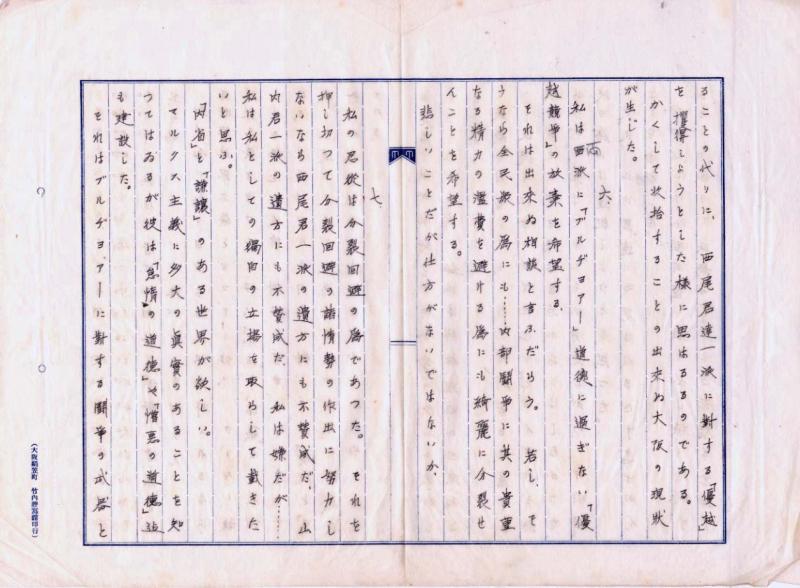 ることの代りに、　西尾君達一派に対する「優越」
を獲得しようとした様に思はるるのである。
かくして收拾することの出来ぬ大阪の現狀
が生じた。
六、
私は両派に「ブルヂヨアー」道徳に過ぎない「優
越競争」の放棄を希望する、
それは出来ぬ相談と言ふだらう。　若し、で
うなら全民衆の為にも……内部闘争に其の貴重
なる精力の濫費を避ける為にも綺麗に分裂せ
んことを希望する。
悲しいことだが仕方がないではないか、
七、
私の忍従は分裂回避の為であつた。　それを
押し切つて分裂回避の諸情勢の作出に努力し
ないなら西尾君一派の遣方にも不賛成だ、山
内君一派の遣方にも不賛成だ、私は嫌だが……
私は私としての獨自の立場を取らして戴きた
いと思ふ。
「内省」と「謙譲」のある世界が欲しい。
マルクス主義に多大の眞實のあることを知
つてはゐるが彼は「怠惰」の道徳」や「憎悪の道徳」迄
も建設した。
それはブルヂヨアーに對する闘争の武器と
（大阪絹笠町　竹内謄寫館印行）